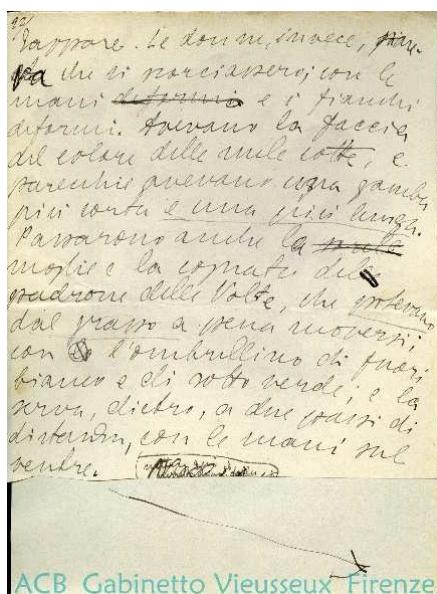 zappare. Le donne, invece, pare-
va che si storciassero; con le
mani deformi e i fianchi
deformi. Avevano la faccia
del colore delle mele cotte, e
parecchie avevano una gamba
più corta e una più lunga.
Passarono anche la
moglie e la cognata del
padrone delle Volte, che potevano
dal grasso a pena muoversi,
con l'ombrellino di fuori
bianco e di sotto verde; e la
serva, dietro, a due passi di
distanza, con le mani sul
ventre.
ACB Gabinetto Vieusseux Firenze